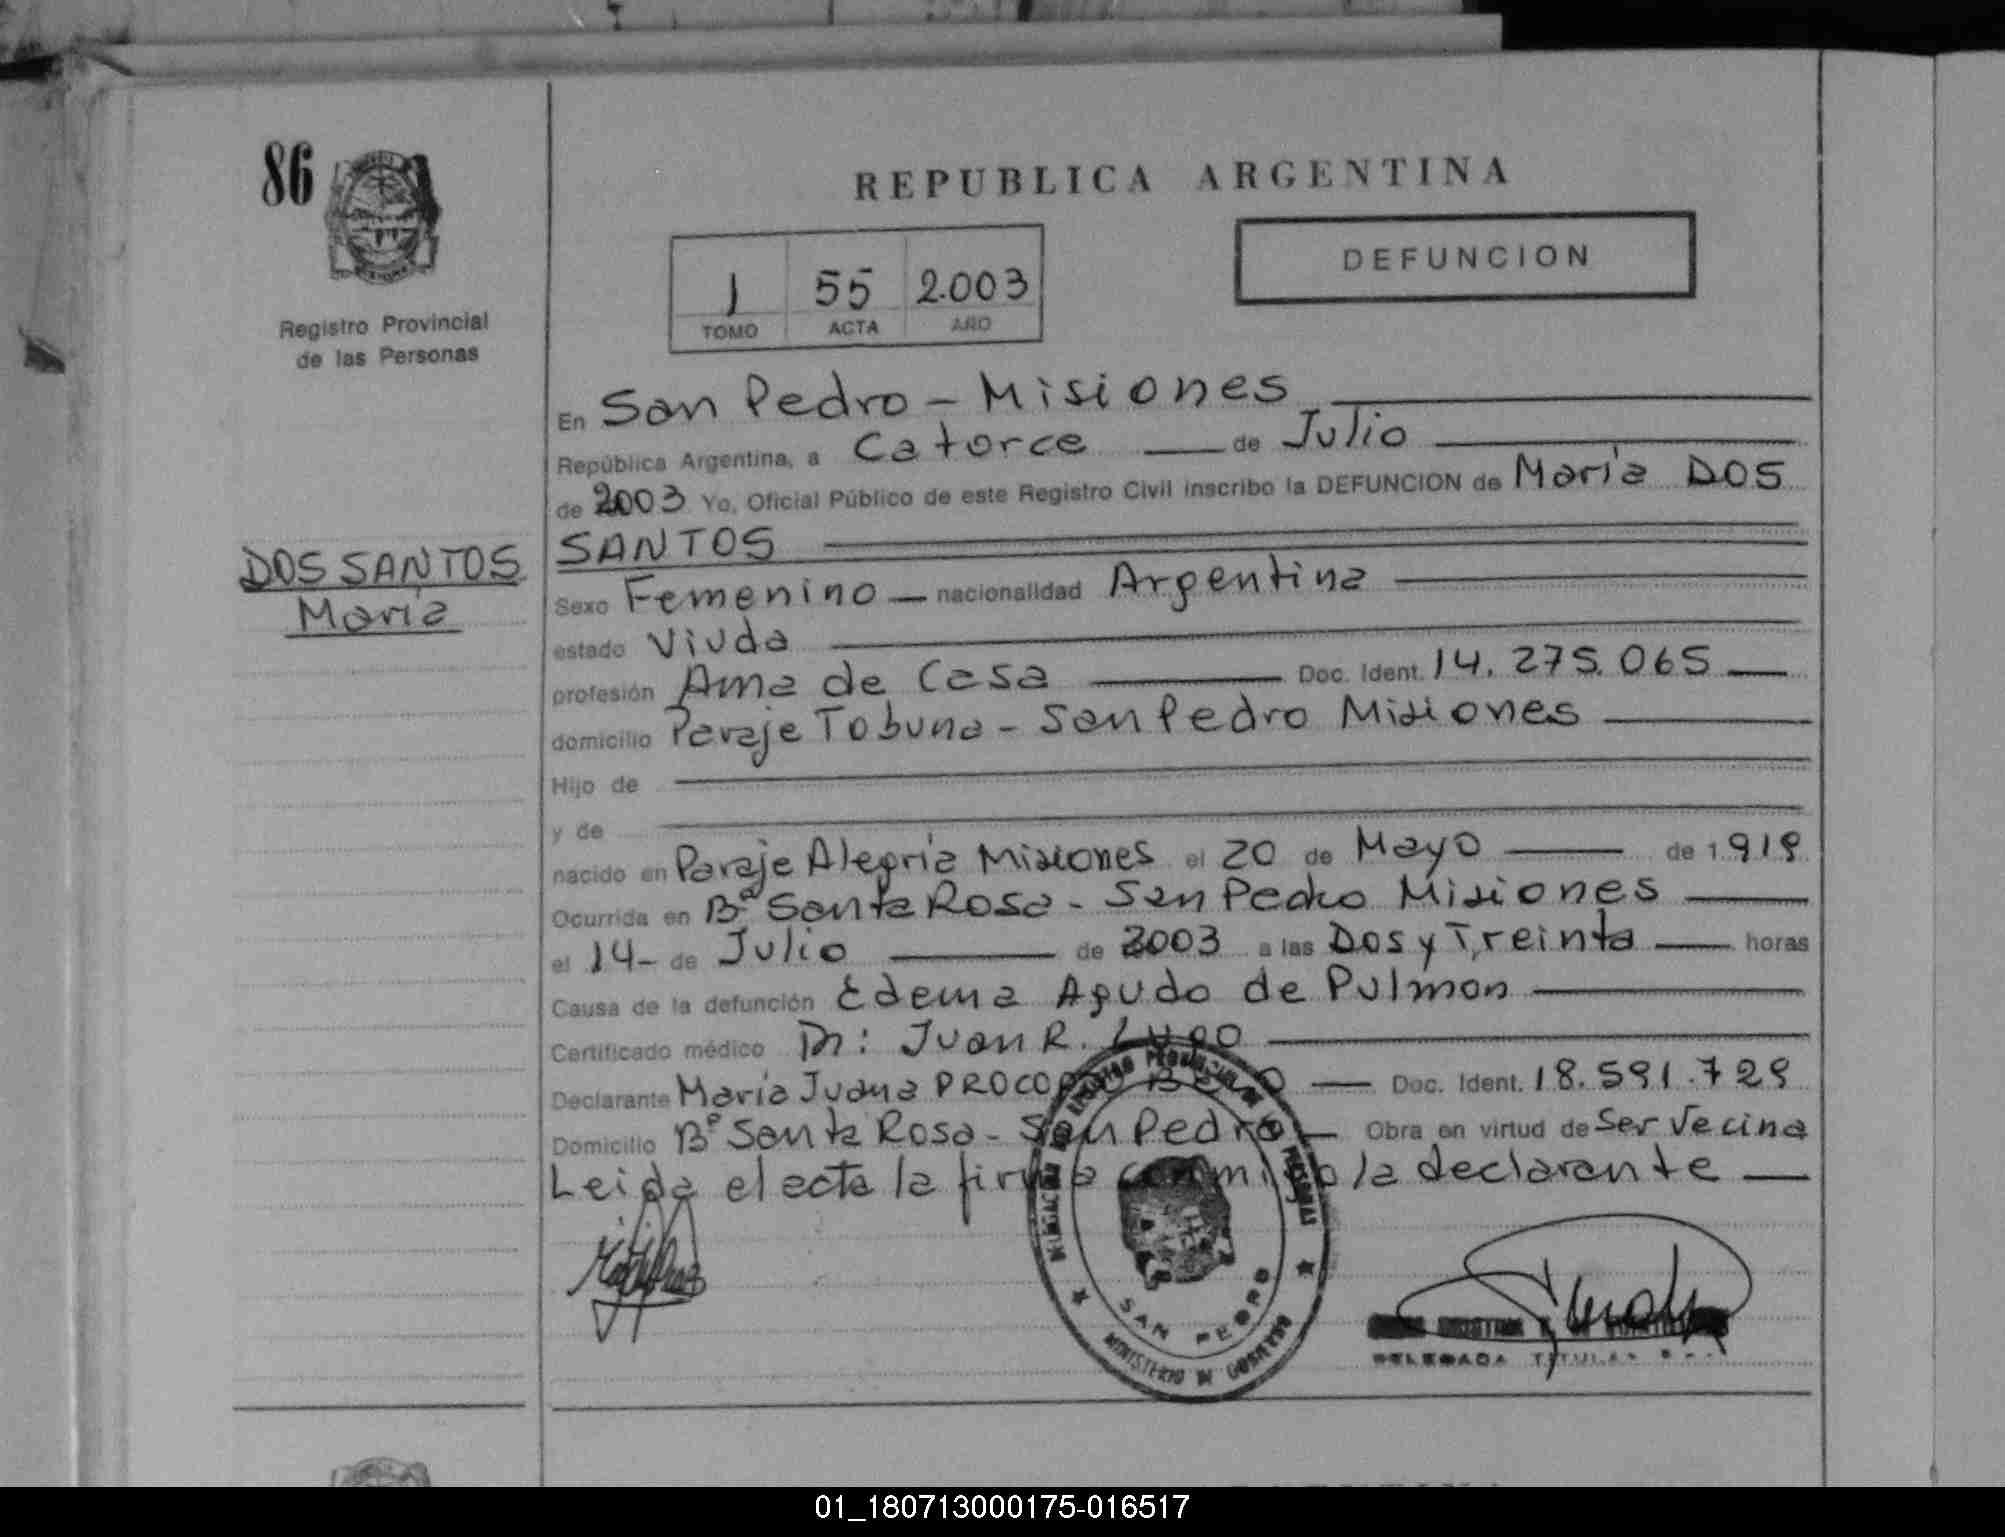 86
REPUBLICA ARGENTINA
DEFUNCION
1 55 2.003
TOMO ACTA AÑO
Registro Provincial
de las Personas
DOS SANTOS
María
En San Pedro - Misiones
República Argentina, a Catorce de Julio
de 2003 Yo, Oficial Público de este Registro Civil inscribo la DEFUNCION de María DOS
SANTOS
Sexo Femenino nacionalidad Argentina
estado Viuda
profesión Ama de Casa Doc. Ident. 14.275.065
domicilio Paraje Tobuna - San Pedro Misiones
Hijo de
y de
nacido en Paraje Alegría Misiones el 20 de Mayo de 1.919
Ocurrida en Bº Santa Rosa - San Pedro Misiones
el 14 - de Julio de 2003 a las Dos y Treinta horas
Causa de la defunción Edema Agudo de Pulmon
Certificado médico Dr: Juan R. Lugo
Declarante María Juana Doc. Ident. 18.591.729
Domicilio Bº Santa Rosa - San Pedro Obra en virtud de Ser Vecina
Leida el acta la firma conmigo la declarante
SAN PEDRO
MINISTERIO DE GOBIERNO
DELEGADA TITULAR
01_180713000175-016517